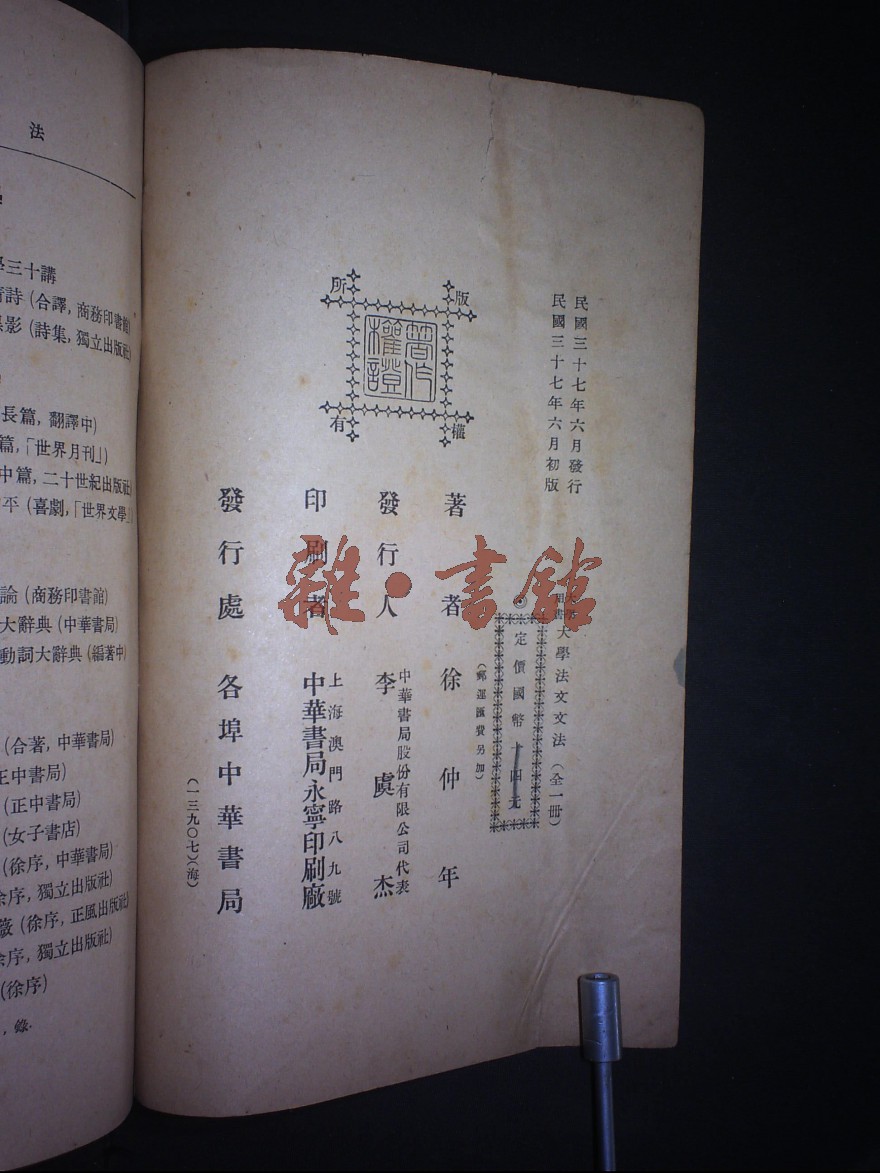 民國三十七年六月發行
民國三十七年六月初版
大學用書
大學法文文法（全一冊）
◎定價國幣十四元
（郵運匯費另加）
版權所有
著作權證
著者 徐仲年
發行人 李虞杰
中華書局股份有限公司代表
印刷者 中華書局永寧印刷廠
上海澳門路八九號
發行處 各埠中華書局
（一三九〇七）（海）
雜·書館
法
學三十講
詩（合譯，商務印書館）
影（詩集，獨立出版社）
長篇，翻譯中）
篇，「世界月刊」）
中篇，二十世紀出版社）
平（喜劇，「世界文學」）
論（商務印書館）
大辭典（中華書局）
動詞大辭典（編著中）
（合著，中華書局）
正中書局）
（正中書局）
（女子書店）
（徐序，中華書局）
序，獨立出版社）
薇（徐序，正風出版社）
序，獨立出版社）
（徐序）
，錄．